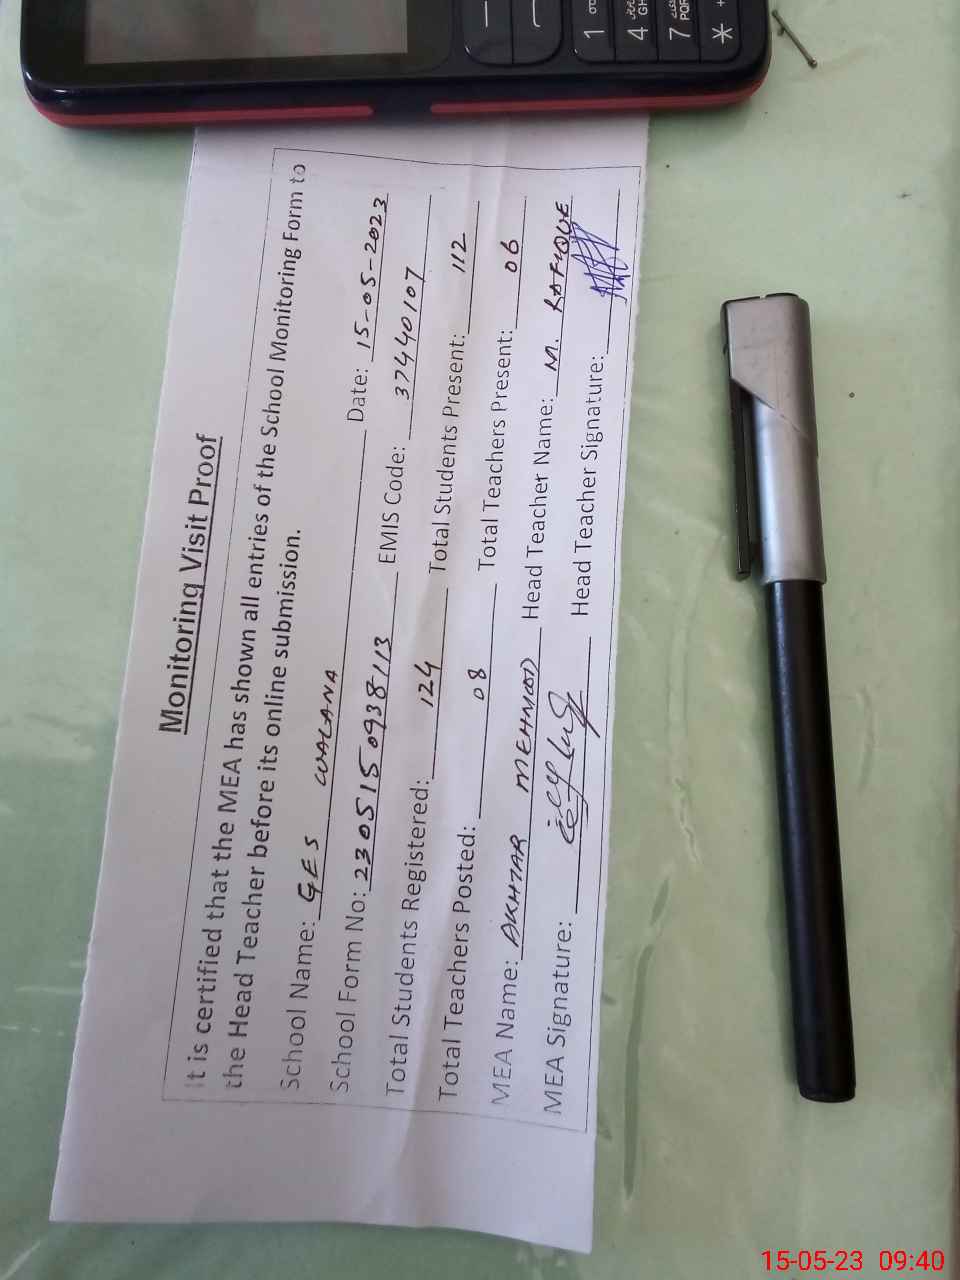 Monitoring Visit Proof
It is certified that the MEA has shown all entries of the School Monitoring Form to
the Head Teacher before its online submission.
School Name: GES WALANA Date: 15-05-2023
School Form No: 2305150938113 EMIS Code: 37440107
Total Students Registered: 124 Total Students Present: 112
Total Teachers Posted: 08 Total Teachers Present: 06
MEA Name: AKHTAR MEHMOOD Head Teacher Name: M. RAFIQUE
MEA Signature: Head Teacher Signature:
1
4 GH
7 PQR
*
15-05-23 09:40